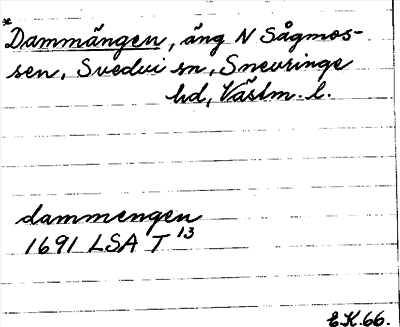 *Dammängen, äng N Sågmos-
sen, Svedvi sn, Snevringe
hd, Västm. l.
dammengen
1691 LSA T 13
E.K. 66.